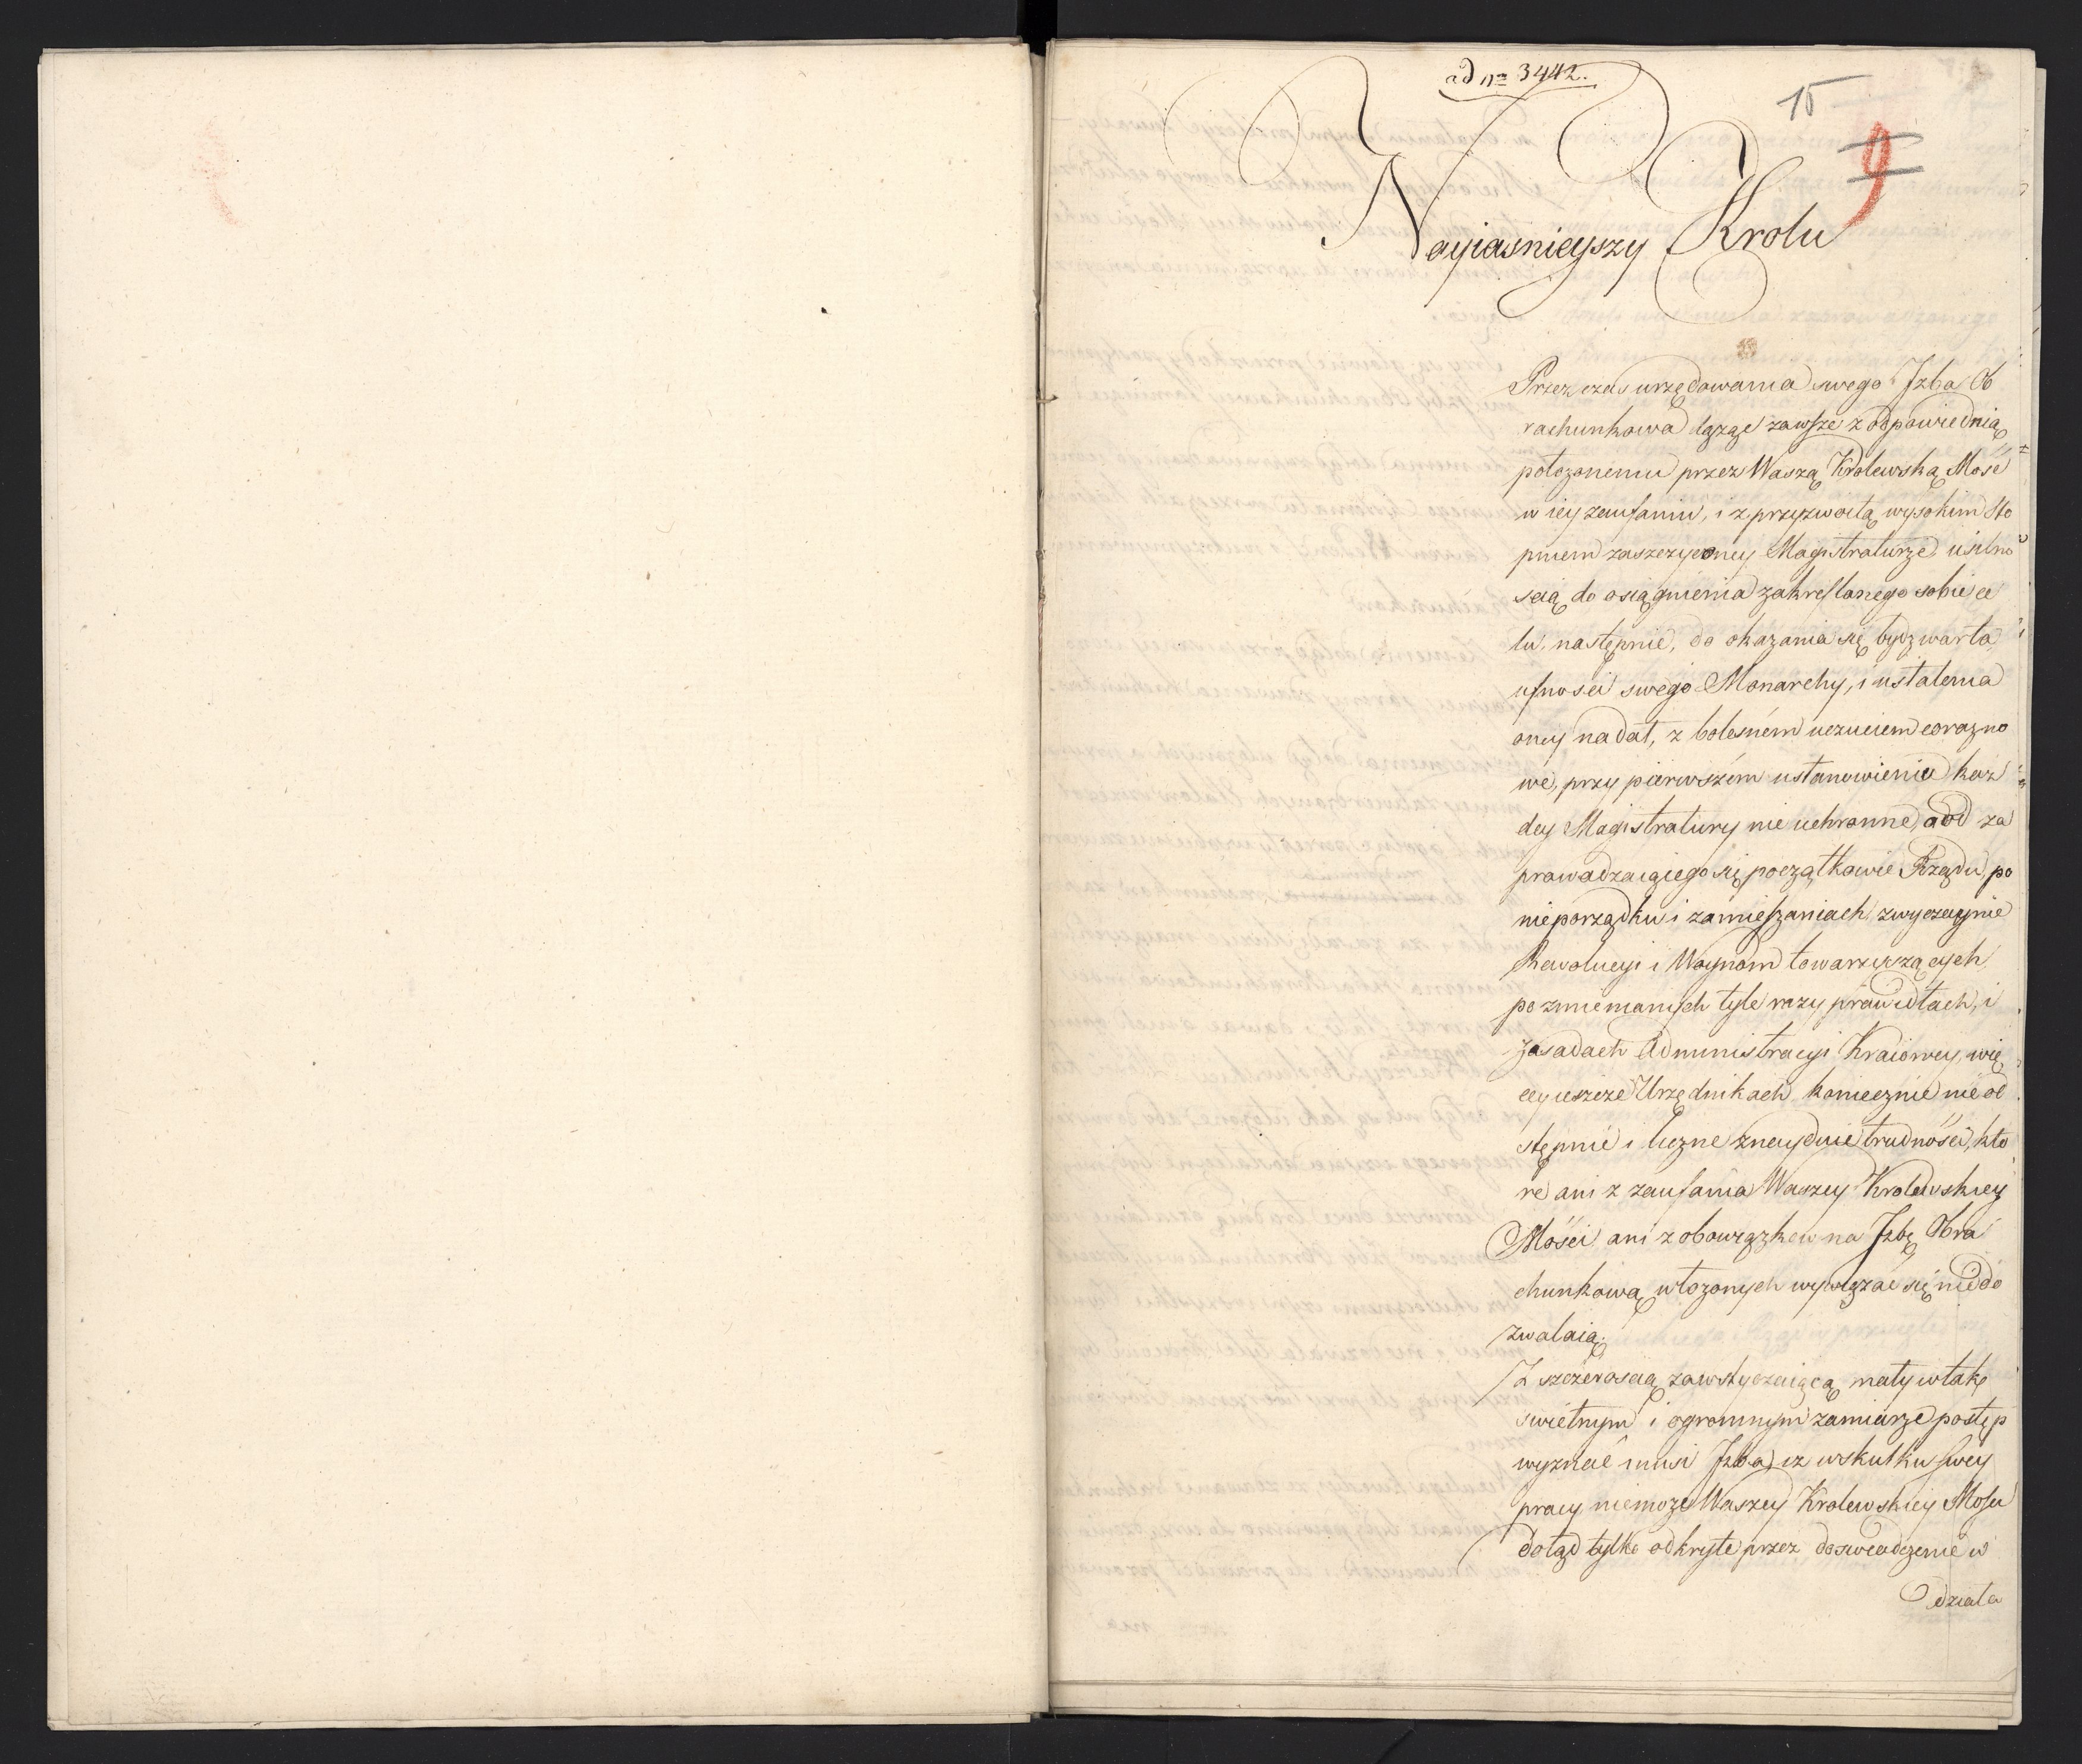 ad nm 3442.
15
9
Nayiasnieyszy Krolu
Przez czas urzędowania swego Jzba Ob
rachunkowa dążąc zawsze z odpowiednią
położonemu przez Waszą Krolewską Mość
w iey zaufaniu, i z przyzwoitą wysokim sto
pniem zaszczyconey Magistraturze usilno
scią do osiągnienia zakreslonego sobie ce
lu, następnie, do okazania się bydz warta
ufnosci swego Monarchy, i ustalenia
oney nadal, z bolesnem uczuciem coraz no
we, przy pierwszem ustanowieniu każ
dey Magistratury nieuchronne, a od za
prowadzaiącego się początkowie Rządu, po
nieporządku i zamieszaniach zwyczaynie
Rewolucyi i Woynom towarzyszących
po zmiemanych tyle razy prawidłach, i
zasadach Administracyi Kraiowey, wię
cey ieszcze Urzędnikach, koniecznie nieod
stępnie i liczne znayduie trudności, kto
re ani z zaufania Waszey Krolewskiey
Mości, ani z obowiązkow na Jzbę Obra
chunkową włożonych wywiązać się niedo
zwalaią.
Z szczerością zawstydzaiącą, mały w tak
świetnym i ogromnym zamiarze postęp
wyznać musi Jzba, iz w skutku swey
pracy, niemoże Waszey Krolewskiey Mości
dotąd tylko odkryte przez doswiadczenie w
działa